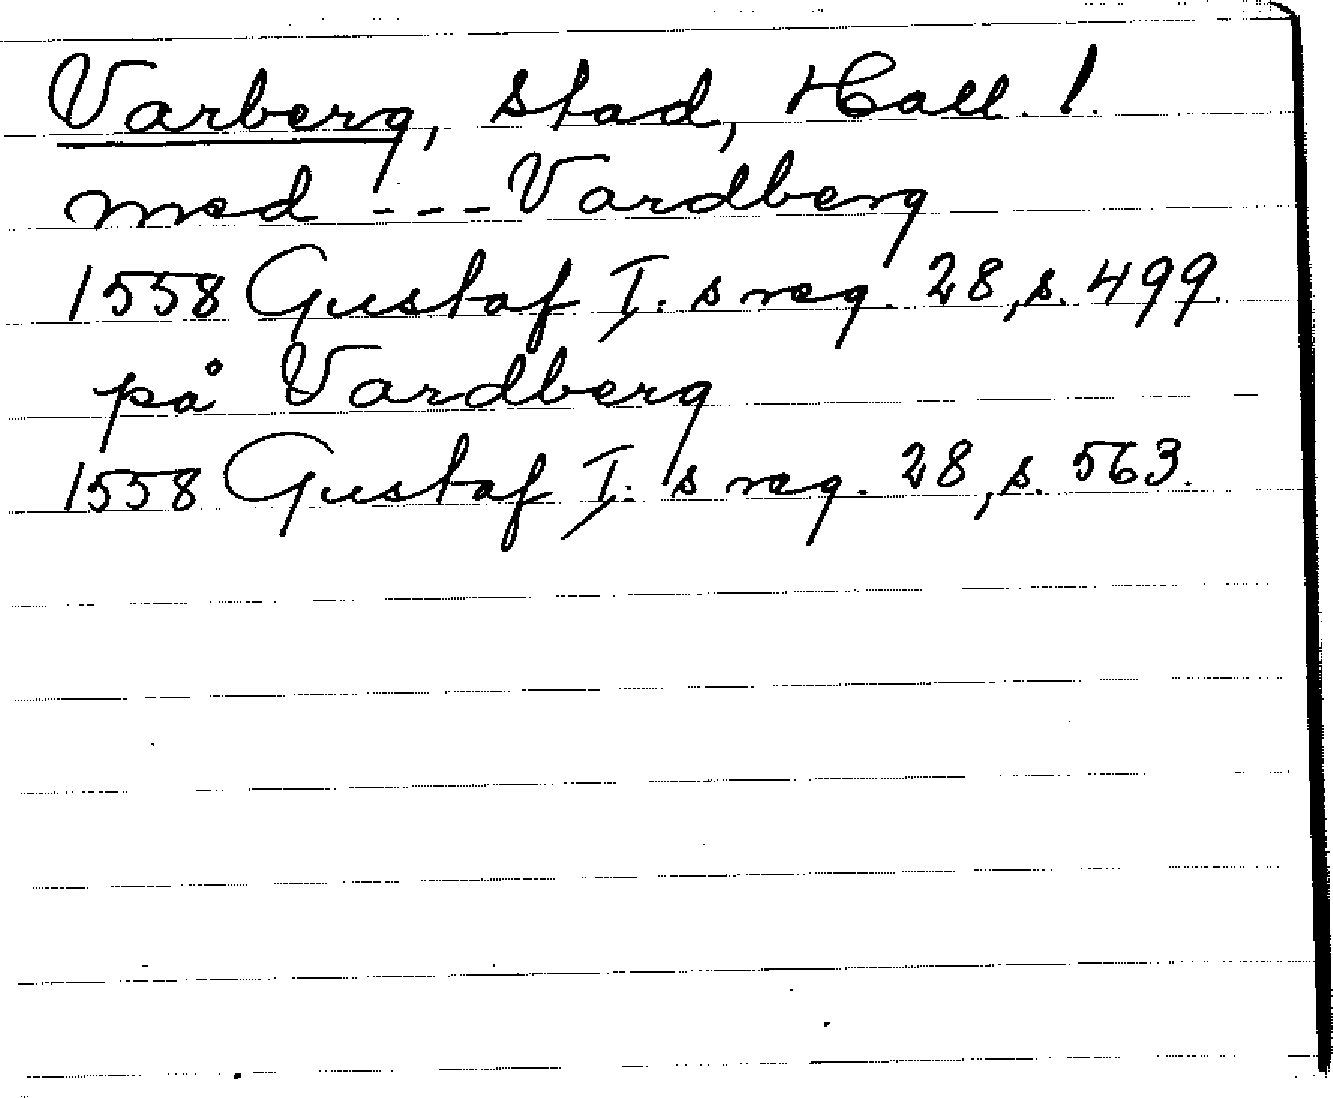 Varberg, stad, Hall. l.
med --- Vardberg
1558 Gustaf I:s reg. 28, s. 499.
på Vardberg
1558 Gustaf I:s reg. 28, s. 563.